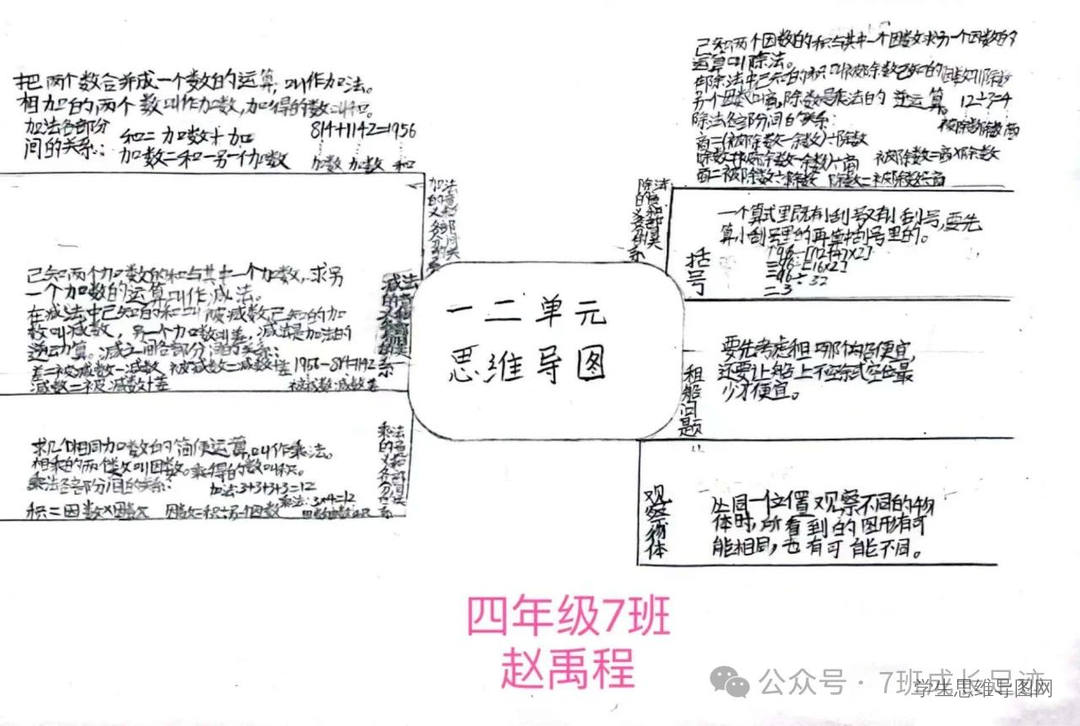 把两个数合并成一个数的运算,叫作加法。
相加的两个数叫作加数,加得的数叫和。
加法各部分
间的关系:
和=加数+加
加数=和-另一个加数
814+1142=1956
加数 加数 和
已知两个加数的和与其中一个加数,求另
一个加数的运算叫作减法。
在减法中已知的和叫被减数已知的加
数叫减数,另一个加数叫差,减法是加法的
逆运算。减法间各部分间的关系:
差=被减数-减数
1956-814=1142
被减数减数差
求几个相同加数的简便运算,叫作乘法。
相乘的两个数叫因数。乘得的数叫积。
乘法各部分间的关系:
加法:3+3+3+3=12
乘法:3×4=12
积=因数×因数 因数=积÷另一个因数
一二单元
思维导图
已知两个因数的积与其中一个因数求另一个因数的
运算叫除法。
在除法中已知的积叫被除数已知的因数叫除数
另个因数叫商,除数是乘法的 逆运算。
除法各部分间的关系:
商=(被除数-余数)÷除数
除数=(被除数-余数)÷商 被除数=商×除数
商=被除数÷除数 除数=被除数÷商
括号
一个算式里既有小括号又有中括号,要先
算小括号里的再算中括号里的。
=3
租船问题
要先考虑租哪个船便宜,
还要让船上不空或空位最
少才便宜。
观察物体
从同一位置观察不同的物
体时,所看到的图形有可
能相同,也有可能不同。
四年级7班
赵禹程
公众号·7班成长足迹
学生思维导图网